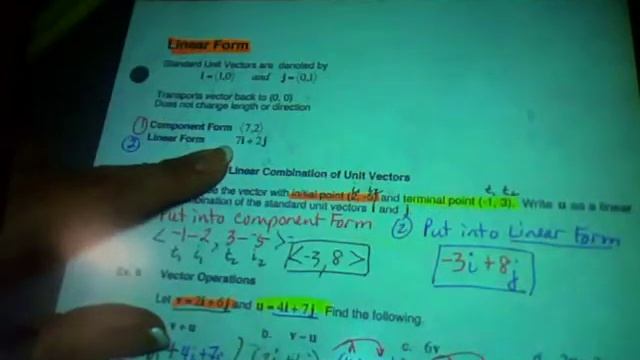 Linear Form
Standard Unit Vectors are denoted by
i = (1,0) and j = (0,1)
Transports vector back to (0, 0)
Does not change length or direction
① Component Form (7,2)
② Linear Form 7i + 2j
Linear Combination of Unit Vectors
the vector with initial point (2, -5) and terminal point (-1, 3). Write u as a linear
t₁ t₂
of the standard unit vectors i and j
Put into Component Form
② Put into Linear Form
< -1-2, 3--5 >
t₁ i₁ t₂ i₂
<-3, 8>
-3i + 8j
Ex. 6 Vector Operations
Let v = 2i + 6j and u = 4i + 7j. Find the following.
v + u
b. v - u
c. 6v